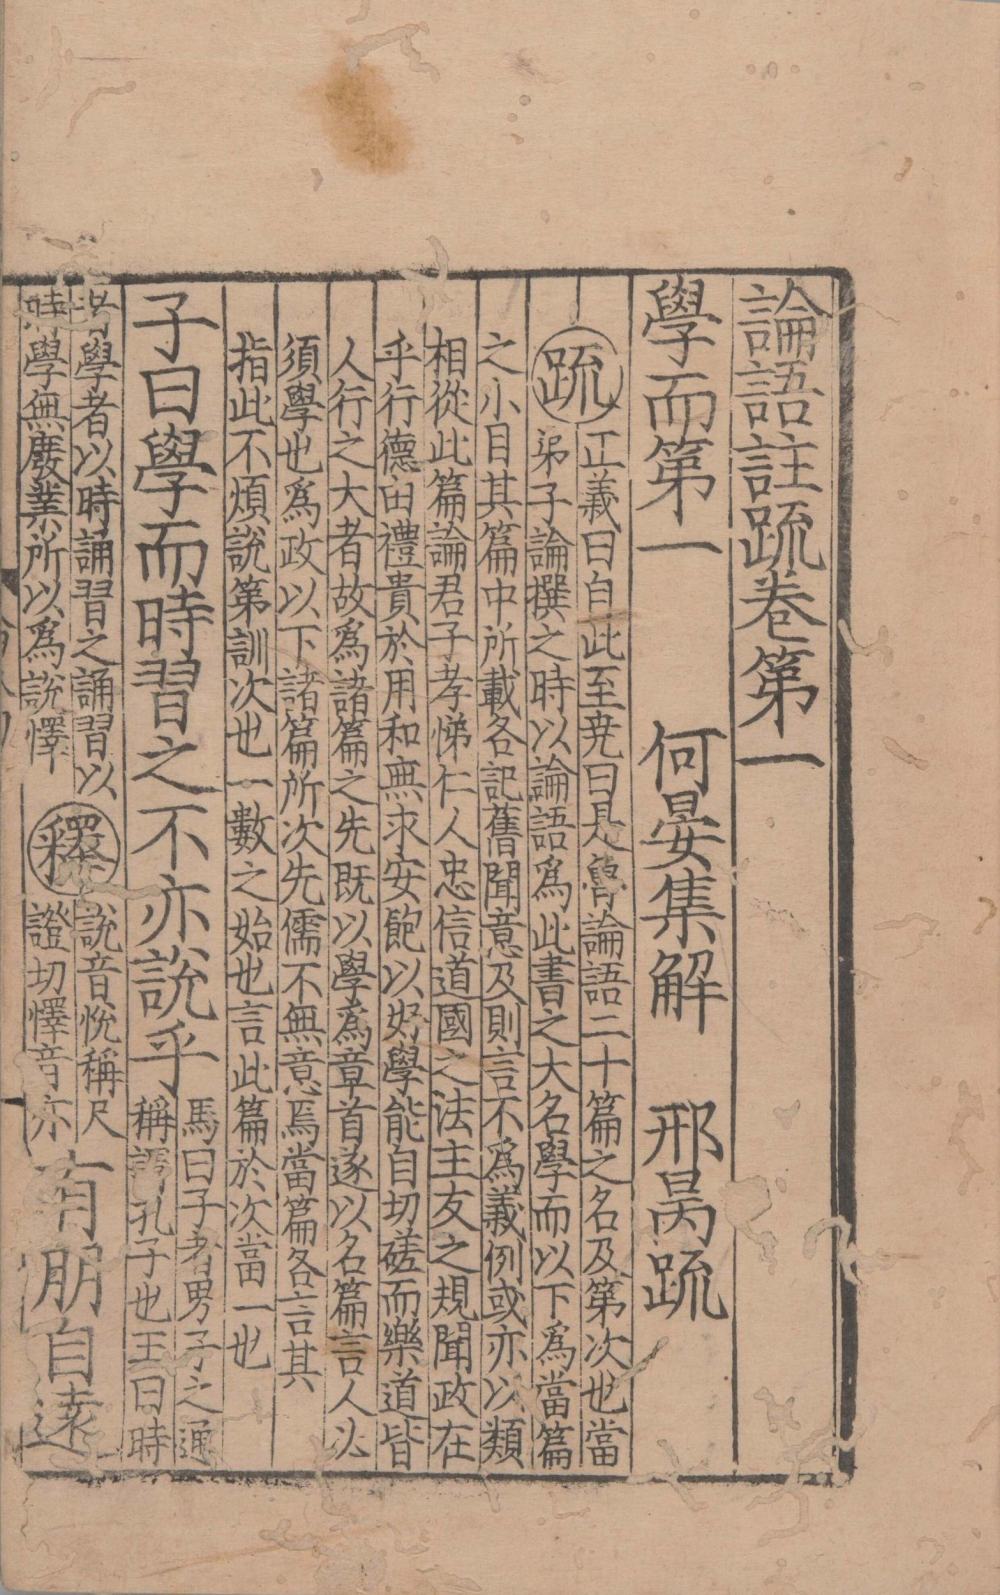 論語註疏卷第一
學而第一　何晏集解　邢昺疏
疏
正義曰自此至堯曰是魯論語二十篇之名及第次也當
弟子論撰之時以論語爲此書之大名學而以下爲當篇
之小目其篇中所載各記舊聞意及則言不爲義例或亦以類
相從此篇論君子孝悌仁人忠信道國之法主友之規聞政在
乎行德由禮貴於用和無求安飽以好學能自切磋而樂道皆
人行之大者故爲諸篇之先既以學爲章首遂以名篇言人必
須學也爲政以下諸篇所次先儒不無意焉當篇各言其
指此不煩說第訓次也一數之始也言此篇於次當一也
子曰學而時習之不亦說乎
馬曰子者男子之通
稱謂孔子也王曰時
者學者以時誦習之誦習以
時學無廢業所以爲說懌
釋
說音悅稱尺
證切懌音亦
有朋自遠